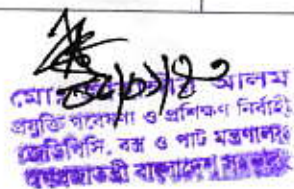 ৩০/০১/২০
মোঃ আলম
প্রযুক্তি গবেষণা ও প্রশিক্ষণ নির্বাহী
জেডিপিসি, বস্ত্র ও পাট মন্ত্রণালয়
গণপ্রজাতন্ত্রী বাংলাদেশ সরকার